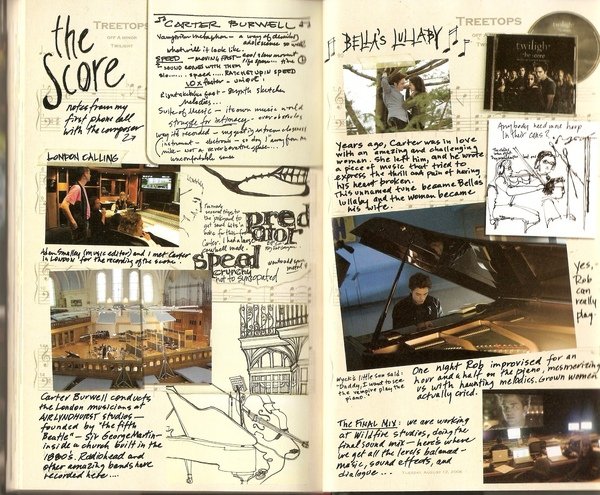 TREETOPS
OFF A MINOR
TWILIGHT
the
Score
notes from my
first phone call
with the composer
CARTER BURWELL
Vampirism metaphor - a way of describing
adolescence so well
what will it look like.
SPEED - MOVING FAST
SOUND GOES WITH THEM
slow...... speed ..... RATCHET UP IN SPEED
10x faster - unique.
melodies...
Suite of Music - its own music world
struggle for intimacy - over obstacles
way it's recorded - suggesting extra closeness
instrument - electronic - so dry / away from the
mike - not a reverberative space....
uncomfortable sense
LONDON CALLING
Adam Smalley (music editor) and I met Carter
in LONDON for the recording of the score.
pred
ator
speed
crunchy
not to syncopated
Carter Burwell conducts
the London musicians at
AIR LYNDHURST STUDIOS -
founded by "the fifth
Beatle" - Sir George Martin -
inside a church built in the
1880's. Radiohead and
other amazing bands have
recorded here....
BELLA'S LULLABY
TREETOPS
OFF A MINOR
TWILIGHT
twilight
the score
Years ago, Carter was in love
with an amazing and challenging
woman. She left him, and he wrote
a piece of music that tried to
express the thrill and pain of having
his heart broken.
This unnamed tune became Bella's
lullaby and the woman became
his wife.
Anybody need and harp
in their cars?
yes,
Rob
can
really
play.
Wyck's little son said:
"Daddy, I want to see
the vampire play the
piano."
One night Rob improvised for an
hour and a half on the piano, mesmerizing
us with haunting melodies. Grown women
actually cried.
The FINAL MIX: we are working
at Wildfire studios, doing the
final sound mix - here's where
we get all the levels balanced -
music, sound effects, and
dialogue...
TUESDAY AUGUST 12, 2008